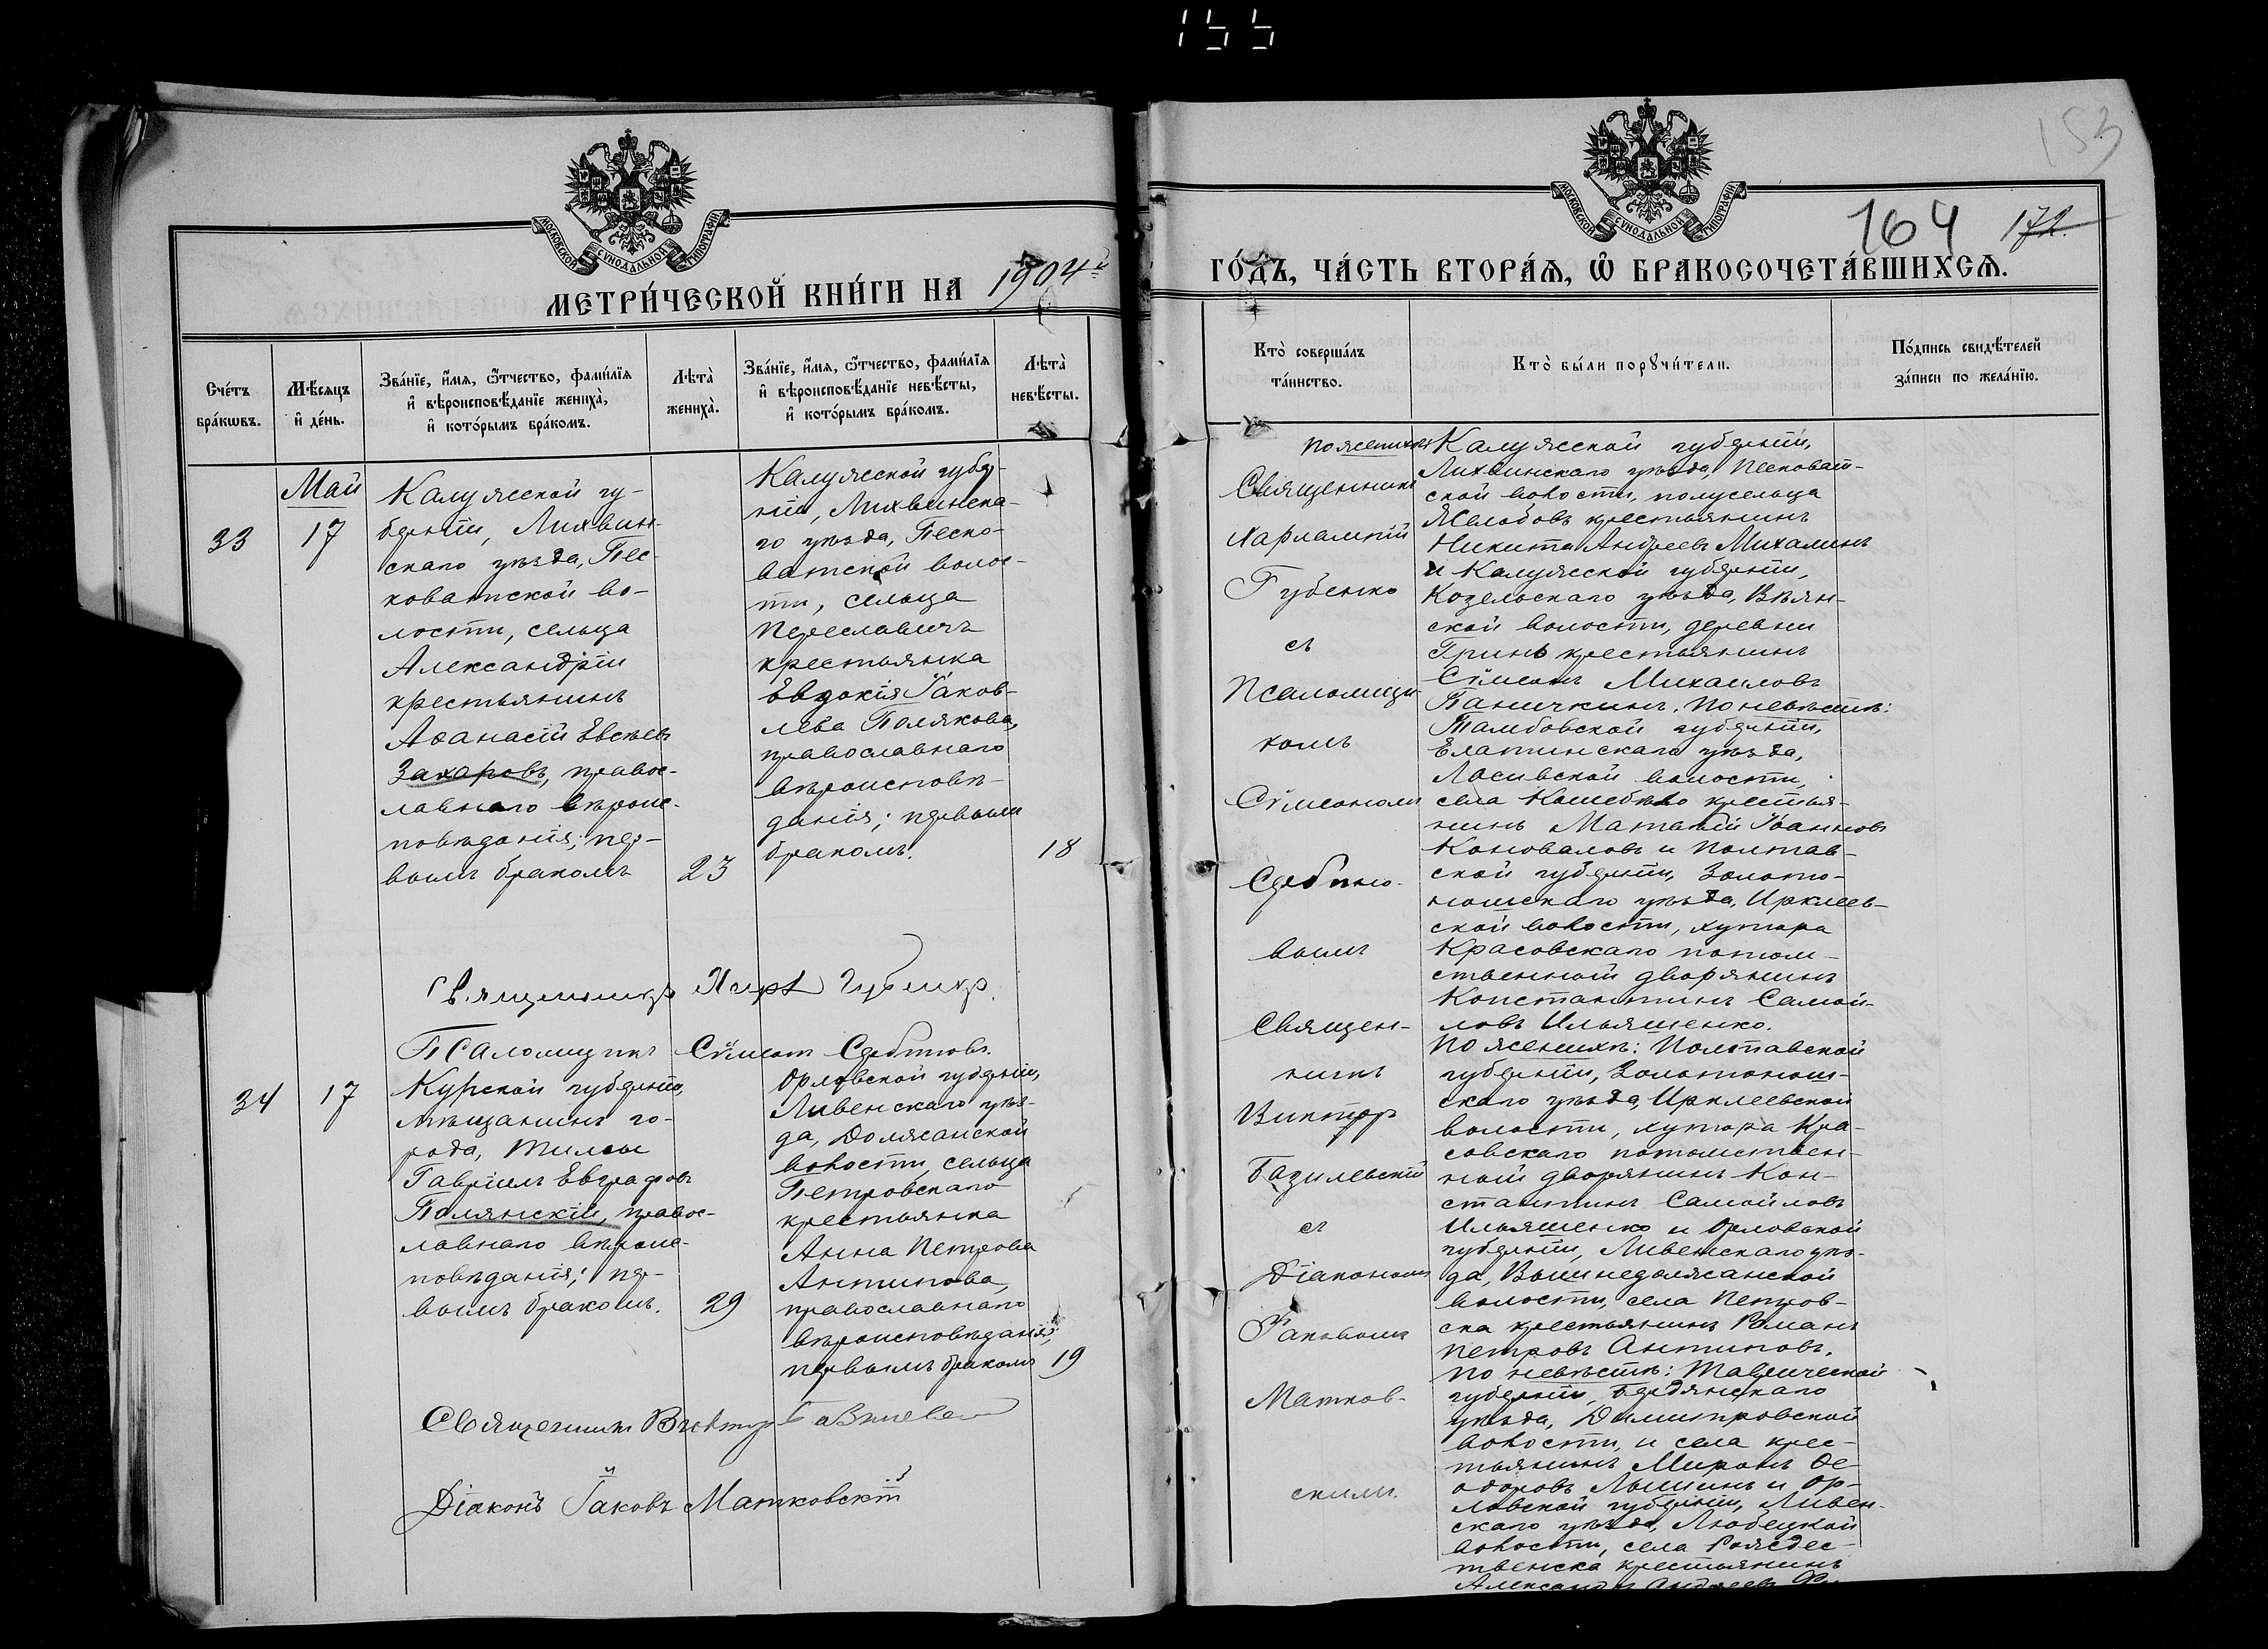 155
153
МОСКОВСКОЙ СѴНОДАЛЬНОЙ ТИПОГРАФІИ
МЕТРИ́ЧЕСКОЙ КНИ́ГИ НА 1904й
Сче́тъ бра́кѡвъ.
Мѣ́сяцъ и҆ де́нь.
Зва́нїе, и҆́мя, ѻ҆́тчество, фами́лїя
и҆ вѣроисповѣ́данїе жениха̀,
и҆ кото́рымъ бра́комъ.
Лѣта̀ жениха̀.
Зва́нїе, и҆́мя, ѻ҆́тчество, фами́лїя
и҆ вѣроисповѣ́данїе невѣ́сты,
и҆ кото́рымъ бра́комъ.
Лѣта̀ невѣ́сты.
33
Май
17
Калужской гу-
берніи, Лихвин-
скаго уѣзда, Пес-
коватской во-
лости, сельца
Александріи
крестьянинъ
Аѳанасій Евсѣевъ
Захаровъ, правос-
лавнаго вѣроис-
повѣданія; пер-
вымъ бракомъ
23
Калужской губер-
ніи, Лихвинска-
го уѣзда, Песко-
ватской волос-
ти, сельца
Переславичъ
крестьянка
Евдокія Іаков-
лева Полякова,
православнаго
вѣроисповѣ-
данія; первымъ
бракомъ.
18
Священникъ Харл Губенко.
Псаломщикъ Сѵмеонъ Сербиновъ.
34
17
Курской губерніи,
мѣщанинъ го-
рода, Тимы
Гавріилъ Евграфовъ
Полянскій, правос-
лавнаго вѣроис-
повѣданія; пер-
вымъ бракомъ.
29
Орловской губерніи,
Ливенскаго уѣз-
да, Должанской
волости, сельца
Петровскаго
крестьянка
Анна Петрова
Антипова,
православнаго
вѣроисповѣданія;
первымъ бракомъ
19
Священникъ Викторъ
Діаконъ Іаковъ Матковскій
МОСКОВСКОЙ СѴНОДАЛЬНОЙ ТИПОГРАФІИ
164 172.
ГО́ДЪ, ЧА́СТЬ ВТОРА́Я, Ѡ҆ БРАКОСОЧЕТА́ВШИХСЯ.
Кто̀ соверша́лъ
та́инство.
Кто̀ бы́ли порꙋчи́тели.
По́дпись свидѣ́телей
за́писи по жела́нїю.
Священникъ
Харлампій
Губенко
съ
Псаломщи-
комъ
Сѵмеономъ
Сербино-
вымъ
по женихѣ: Калужской губерніи,
Лихвинскаго уѣзда, Песковат-
ской волости, полусельца
Желобовъ крестьянинъ
Никита Андреевъ Михалинъ
и Калужской губерніи,
Козельскаго уѣзда, Вѣян-
ской волости, деревни
Гринь крестьянинъ
Сѵмеонъ Михаиловъ
Паничкинъ. по невѣстѣ:
Тамбовской губерніи,
Елатинскаго уѣзда,
волости,
села крестья-
нинъ Матѳій Іоанновъ
Коноваловъ и Полтав-
ской губерніи, Золото-
ношскаго уѣзда, Ирклеев-
ской волости, хутора
Красовскаго потом-
ственный дворянинъ
Константинъ Самой-
ловъ Ильяшенко.
Священ-
никъ
Викторъ
Базилевскій
съ
Діакономъ
Іаковомъ
Матков-
скимъ.
По женихѣ: Полтавской
губерніи, Золотонош-
скаго уѣзда, Ирклеевской
волости, хутора Кра-
совскаго потомствен-
ный дворянинъ Кон-
стантинъ Самойловъ
Ильяшенко и Орловской
губерніи, Ливенскаго уѣз-
да, Вышнедолжанской
волости, села Петров-
ска крестьянинъ Романъ
Петровъ Антиповъ.
по невѣстѣ: Таврической
губерніи, Бердянскаго
уѣзда, Димитровской
волости, и села крес-
тьянинъ Миронъ Ѳе-
одоровъ Лышинъ и Ор-
ловской губерніи, Ливен-
скаго уѣзда, Любецкой
волости, села Рождес-
твенска крестьянинъ
Александръ Андреевъ